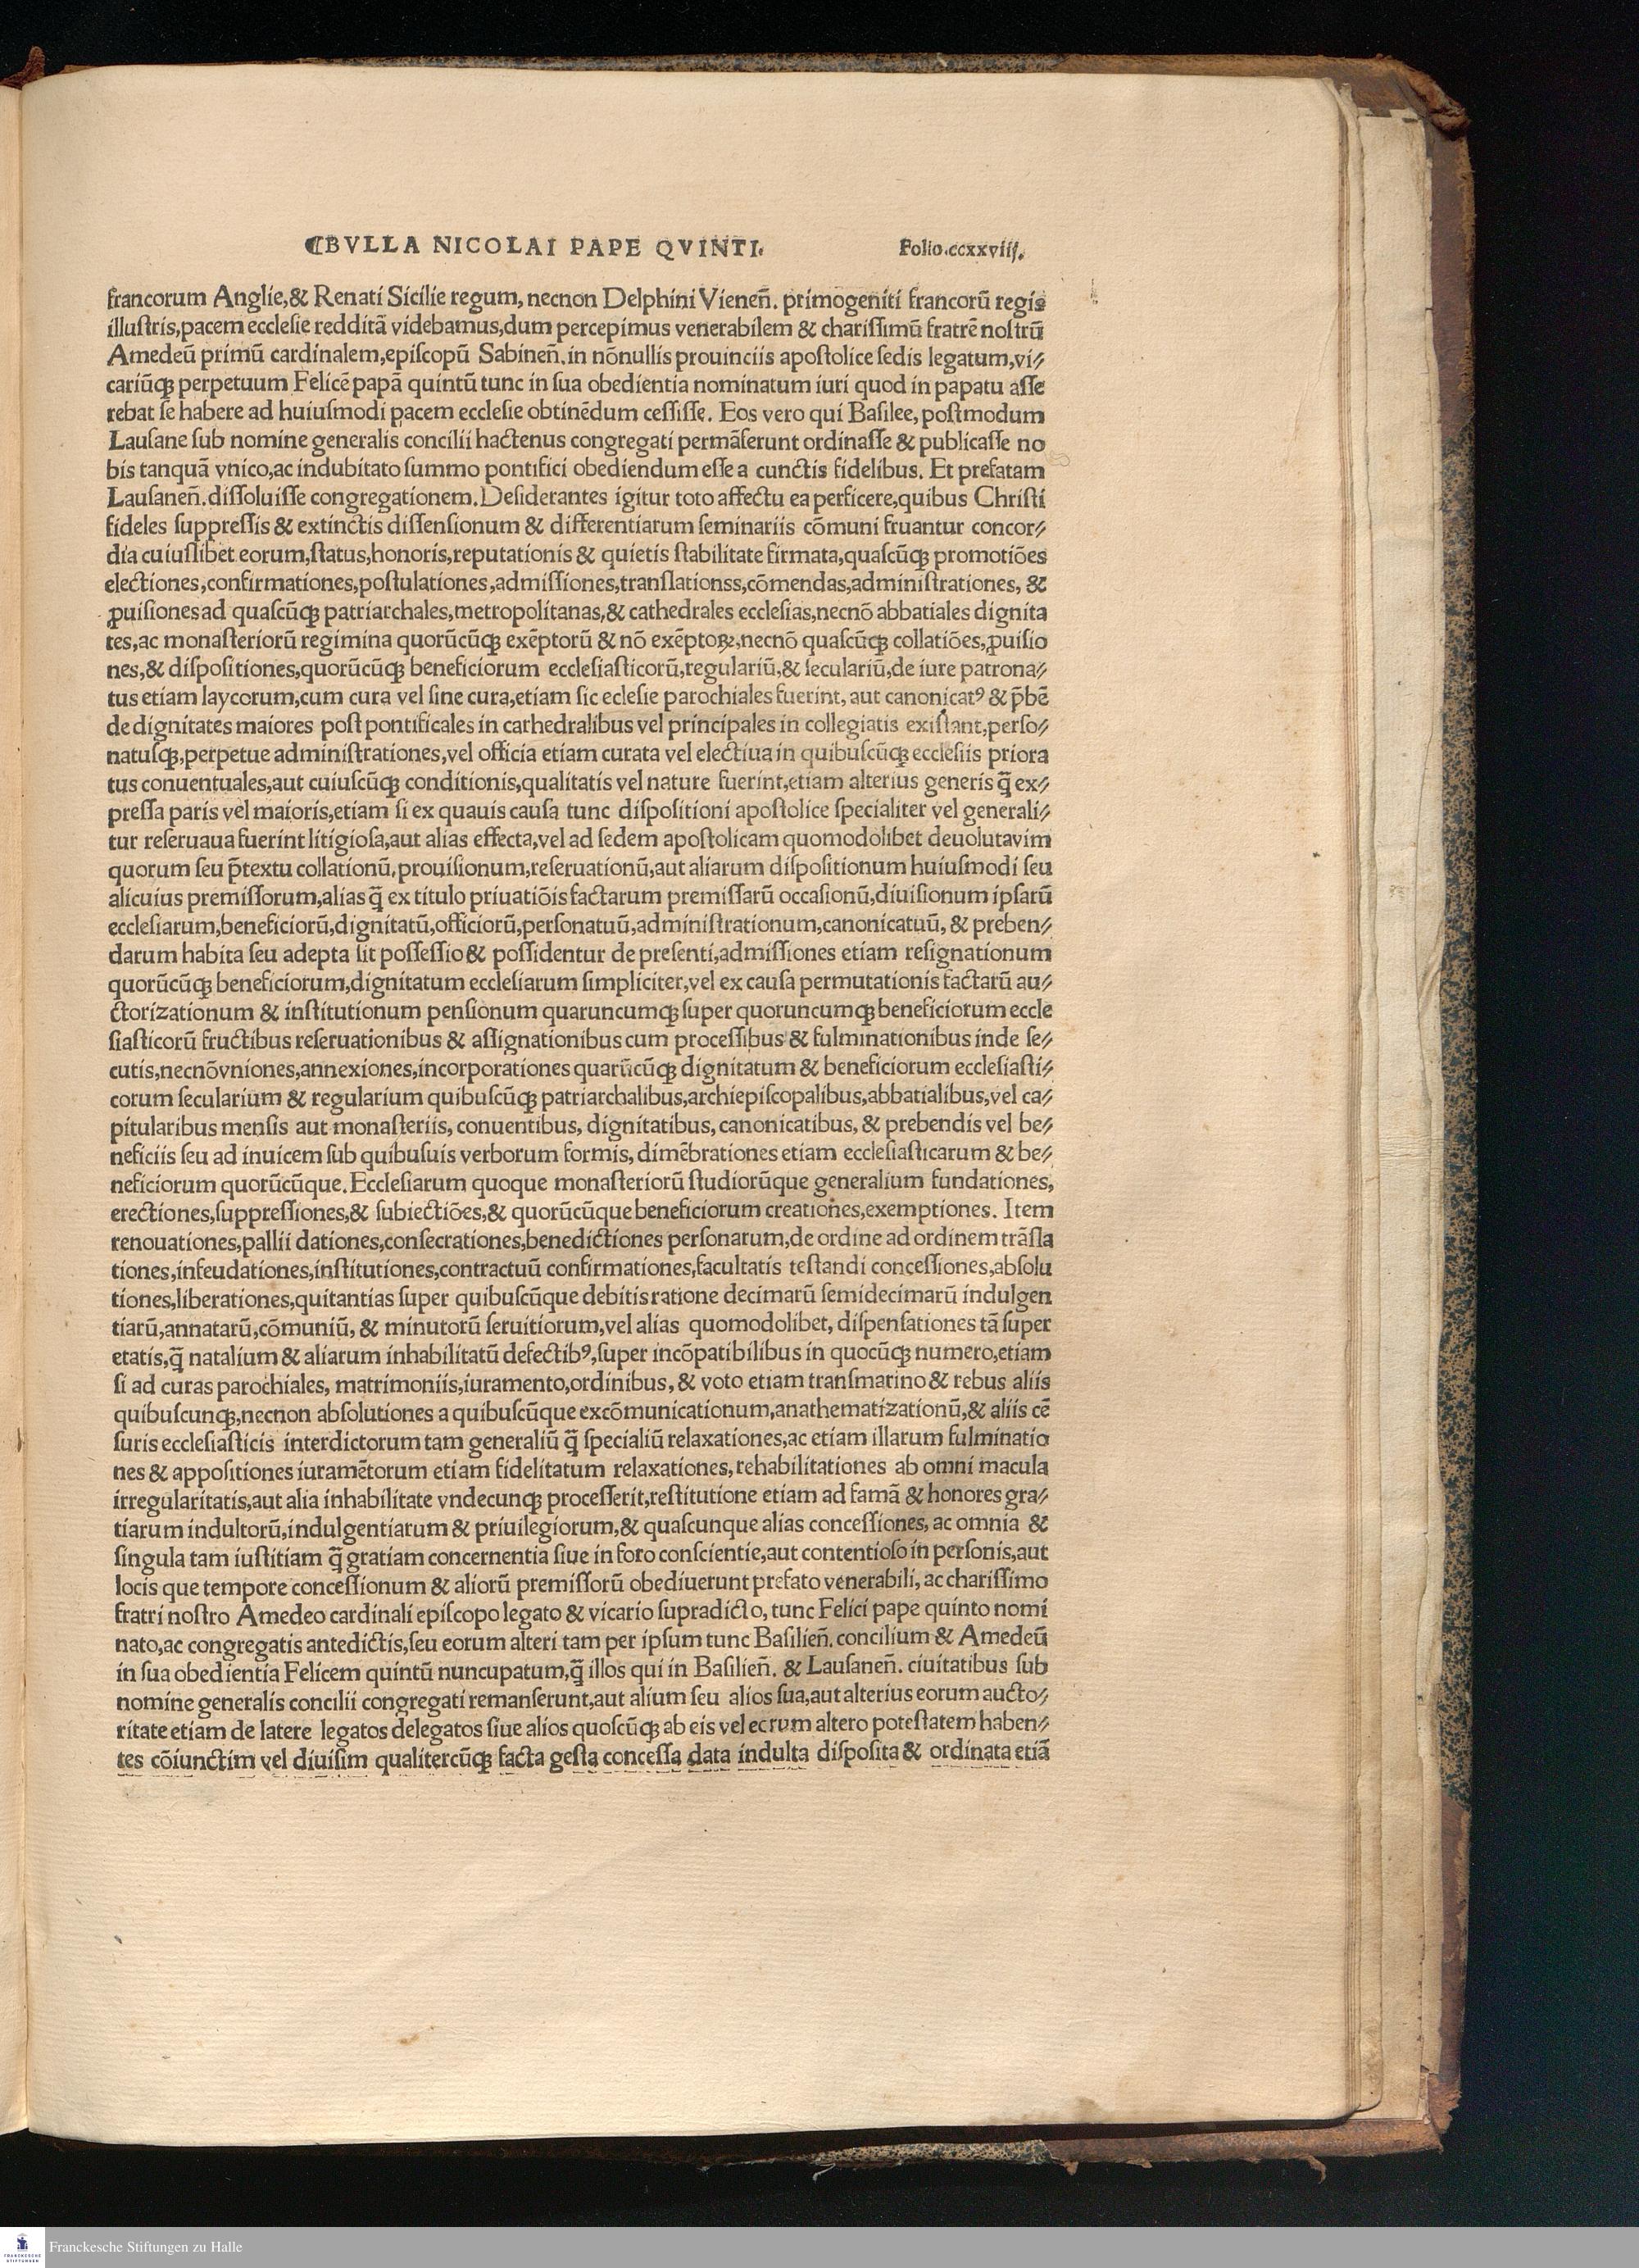 ⁋BVLLA NICOLAI PAPE QVINTI. Folio.ccxxviij.
francorum Anglie,& Renati Sicilie regum, necnon Delphini Vienen̄. primogeniti francorū regis
illuſtris,pacem eccleſie redditā videbamus,dum percepimus venerabilem & chariſſimū fratrē noſtrū
Amedeū primū cardinalem,epiſcopū Sabinen̄.in nōnullis prouinciis apoſtolice ſedis legatum,vi⸗
cariūqꝫ perpetuum Felicē papā quintū tunc in ſua obedientia nominatum iuri quod in papatu aſſe
rebat ſe habere ad huiuſmodi pacem eccleſie obtinēdum ceſſiſſe. Eos vero qui Baſilee, poſtmodum
Lauſane ſub nomine generalis concilii hactenus congregati permāſerunt ordinaſſe & publicaſſe no
bis tanquā vnico,ac indubitato ſummo pontifici obediendum eſſe a cunctis fidelibus. Et prefatam
Lauſanen̄.diſſoluiſſe congregationem.Deſiderantes igitur toto affectu ea perficere,quibus Chriſti
fideles ſuppreſſis & extinctis diſſenſionum & differentiarum ſeminariis cōmuni fruantur concor⸗
dia cuiuſlibet eorum,ſtatus,honoris,reputationis & quietis ſtabilitate firmata,quaſcūqꝫ promotiōes
electiones,confirmationes,poſtulationes,admiſſiones,tranſlationss,cōmendas,adminiſtrationes, &
ꝓuiſiones ad quaſcūqꝫ patriarchales,metropolitanas,& cathedrales eccleſias,necnō abbatiales dignita
tes,ac monaſteriorū regimina quorūcūqꝫ exēptorū & nō exēptoꝝ,necnō quaſcūqꝫ collatiōes,ꝓuiſio
nes,& diſpoſitiones,quorūcūqꝫ beneficiorum eccleſiaſticorū,regulariū,& ſeculariū,de iure patrona⸗
tus etiam laycorum,cum cura vel ſine cura,etiam ſic ecleſie parochiales fuerint, aut canonicatꝰ & p̄bē
de dignitates maiores poſt pontificales in cathedralibus vel principales in collegiatis exiſtant,perſo⸗
natuſqꝫ,perpetue adminiſtrationes,vel officia etiam curata vel electiua in quibuſcūqꝫ eccleſiis priora
tus conuentuales,aut cuiuſcūqꝫ conditionis,qualitatis vel nature fuerint,etiam alterius generis q̄ ex⸗
preſſa paris vel maioris,etiam ſi ex quauis cauſa tunc diſpoſitioni apoſtolice ſpecialiter vel generali⸗
tur reſeruaua fuerint litigioſa,aut alias effecta,vel ad ſedem apoſtolicam quomodolibet deuolutavim
quorum ſeu p̄textu collationū,prouiſionum,reſeruationū,aut aliarum diſpoſitionum huiuſmodi ſeu
alicuius premiſſorum,alias q̄ ex titulo priuatiōis factarum premiſſarū occaſionū,diuiſionum ipſarū
eccleſiarum,beneficiorū,dignitatū,officiorū,perſonatuū,adminiſtrationum,canonicatuū, & preben⸗
darum habita ſeu adepta ſit poſſeſſio & poſſidentur de preſenti,admiſſiones etiam reſignationum
quorūcūqꝫ beneficiorum,dignitatum eccleſiarum ſimpliciter,vel ex cauſa permutationis factarū au⸗
ctorizationum & inſtitutionum penſionum quaruncumqꝫ ſuper quoruncumqꝫ beneficiorum eccle
ſiaſticorū fructibus reſeruationibus & aſſignationibus cum proceſſibus & fulminationibus inde ſe⸗
cutis,necnōvniones,annexiones,incorporationes quarūcūqꝫ dignitatum & beneficiorum eccleſiaſti⸗
corum ſecularium & regularium quibuſcūqꝫ patriarchalibus,archiepiſcopalibus,abbatialibus,vel ca⸗
pitularibus menſis aut monaſteriis, conuentibus, dignitatibus, canonicatibus, & prebendis vel be⸗
neficiis ſeu ad inuicem ſub quibuſuis verborum formis, dimēbrationes etiam eccleſiaſticarum & be⸗
neficiorum quorūcūque. Eccleſiarum quoque monaſteriorū ſtudiorūque generalium fundationes,
erectiones,ſuppreſſiones,& ſubiectiōes,& quorūcūque beneficiorum creationes,exemptiones. Item
renouationes,pallii dationes,conſecrationes,benedictiones perſonarum,de ordine ad ordinem trāſla
tiones,infeudationes,inſtitutiones,contractuū confirmationes,facultatis teſtandi conceſſiones,abſolu
tiones,liberationes,quitantias ſuper quibuſcūque debitis ratione decimarū ſemidecimarū indulgen
tiarū,annatarū,cōmuniū, & minutorū ſeruitiorum,vel alias quomodolibet, diſpenſationes tā ſuper
etatis,q̄ natalium & aliarum inhabilitatū defectibꝰ,ſuper incōpatibilibus in quocūqꝫ numero,etiam
ſi ad curas parochiales, matrimoniis,iuramento,ordinibus, & voto etiam tranſmarino & rebus aliis
quibuſcunqꝫ,necnon abſolutiones a quibuſcūque excōmunicationum,anathematizationū,& aliis cē
ſuris eccleſiaſticis interdictorum tam generaliū q̄ ſpecialiū relaxationes,ac etiam illarum fulminatio
nes & appoſitiones iuramētorum etiam fidelitatum relaxationes, rehabilitationes ab omni macula
irregularitatis,aut alia inhabilitate vndecunqꝫ proceſſerit,reſtitutione etiam ad famā & honores gra⸗
tiarum indultorū,indulgentiarum & priuilegiorum,& quaſcunque alias conceſſiones, ac omnia &
ſingula tam iuſtitiam q̄ gratiam concernentia ſiue in foro conſcientie,aut contentioſo in perſonis,aut
locis que tempore conceſſionum & aliorū premiſſorū obediuerunt prefato venerabili, ac chariſſimo
fratri noſtro Amedeo cardinali epiſcopo legato & vicario ſupradicto, tunc Felici pape quinto nomi
nato,ac congregatis antedictis,ſeu eorum alteri tam per ipſum tunc Baſilien̄. concilium & Amedeū
in ſua obedientia Felicem quintū nuncupatum,q̄ illos qui in Baſilien̄. & Lauſanen̄. ciuitatibus ſub
nomine generalis concilii congregati remanſerunt,aut alium ſeu alios ſua,aut alterius eorum aucto⸗
ritate etiam de latere legatos delegatos ſiue alios quoſcūqꝫ ab eis vel ecrum altero poteſtatem haben⸗
tes cōiunctim vel diuiſim qualitercūqꝫ facta geſta conceſſa data indulta diſpoſita & ordinata etiā
FRANCKESCHE STIFTUNGEN
Franckesche Stiftungen zu Halle